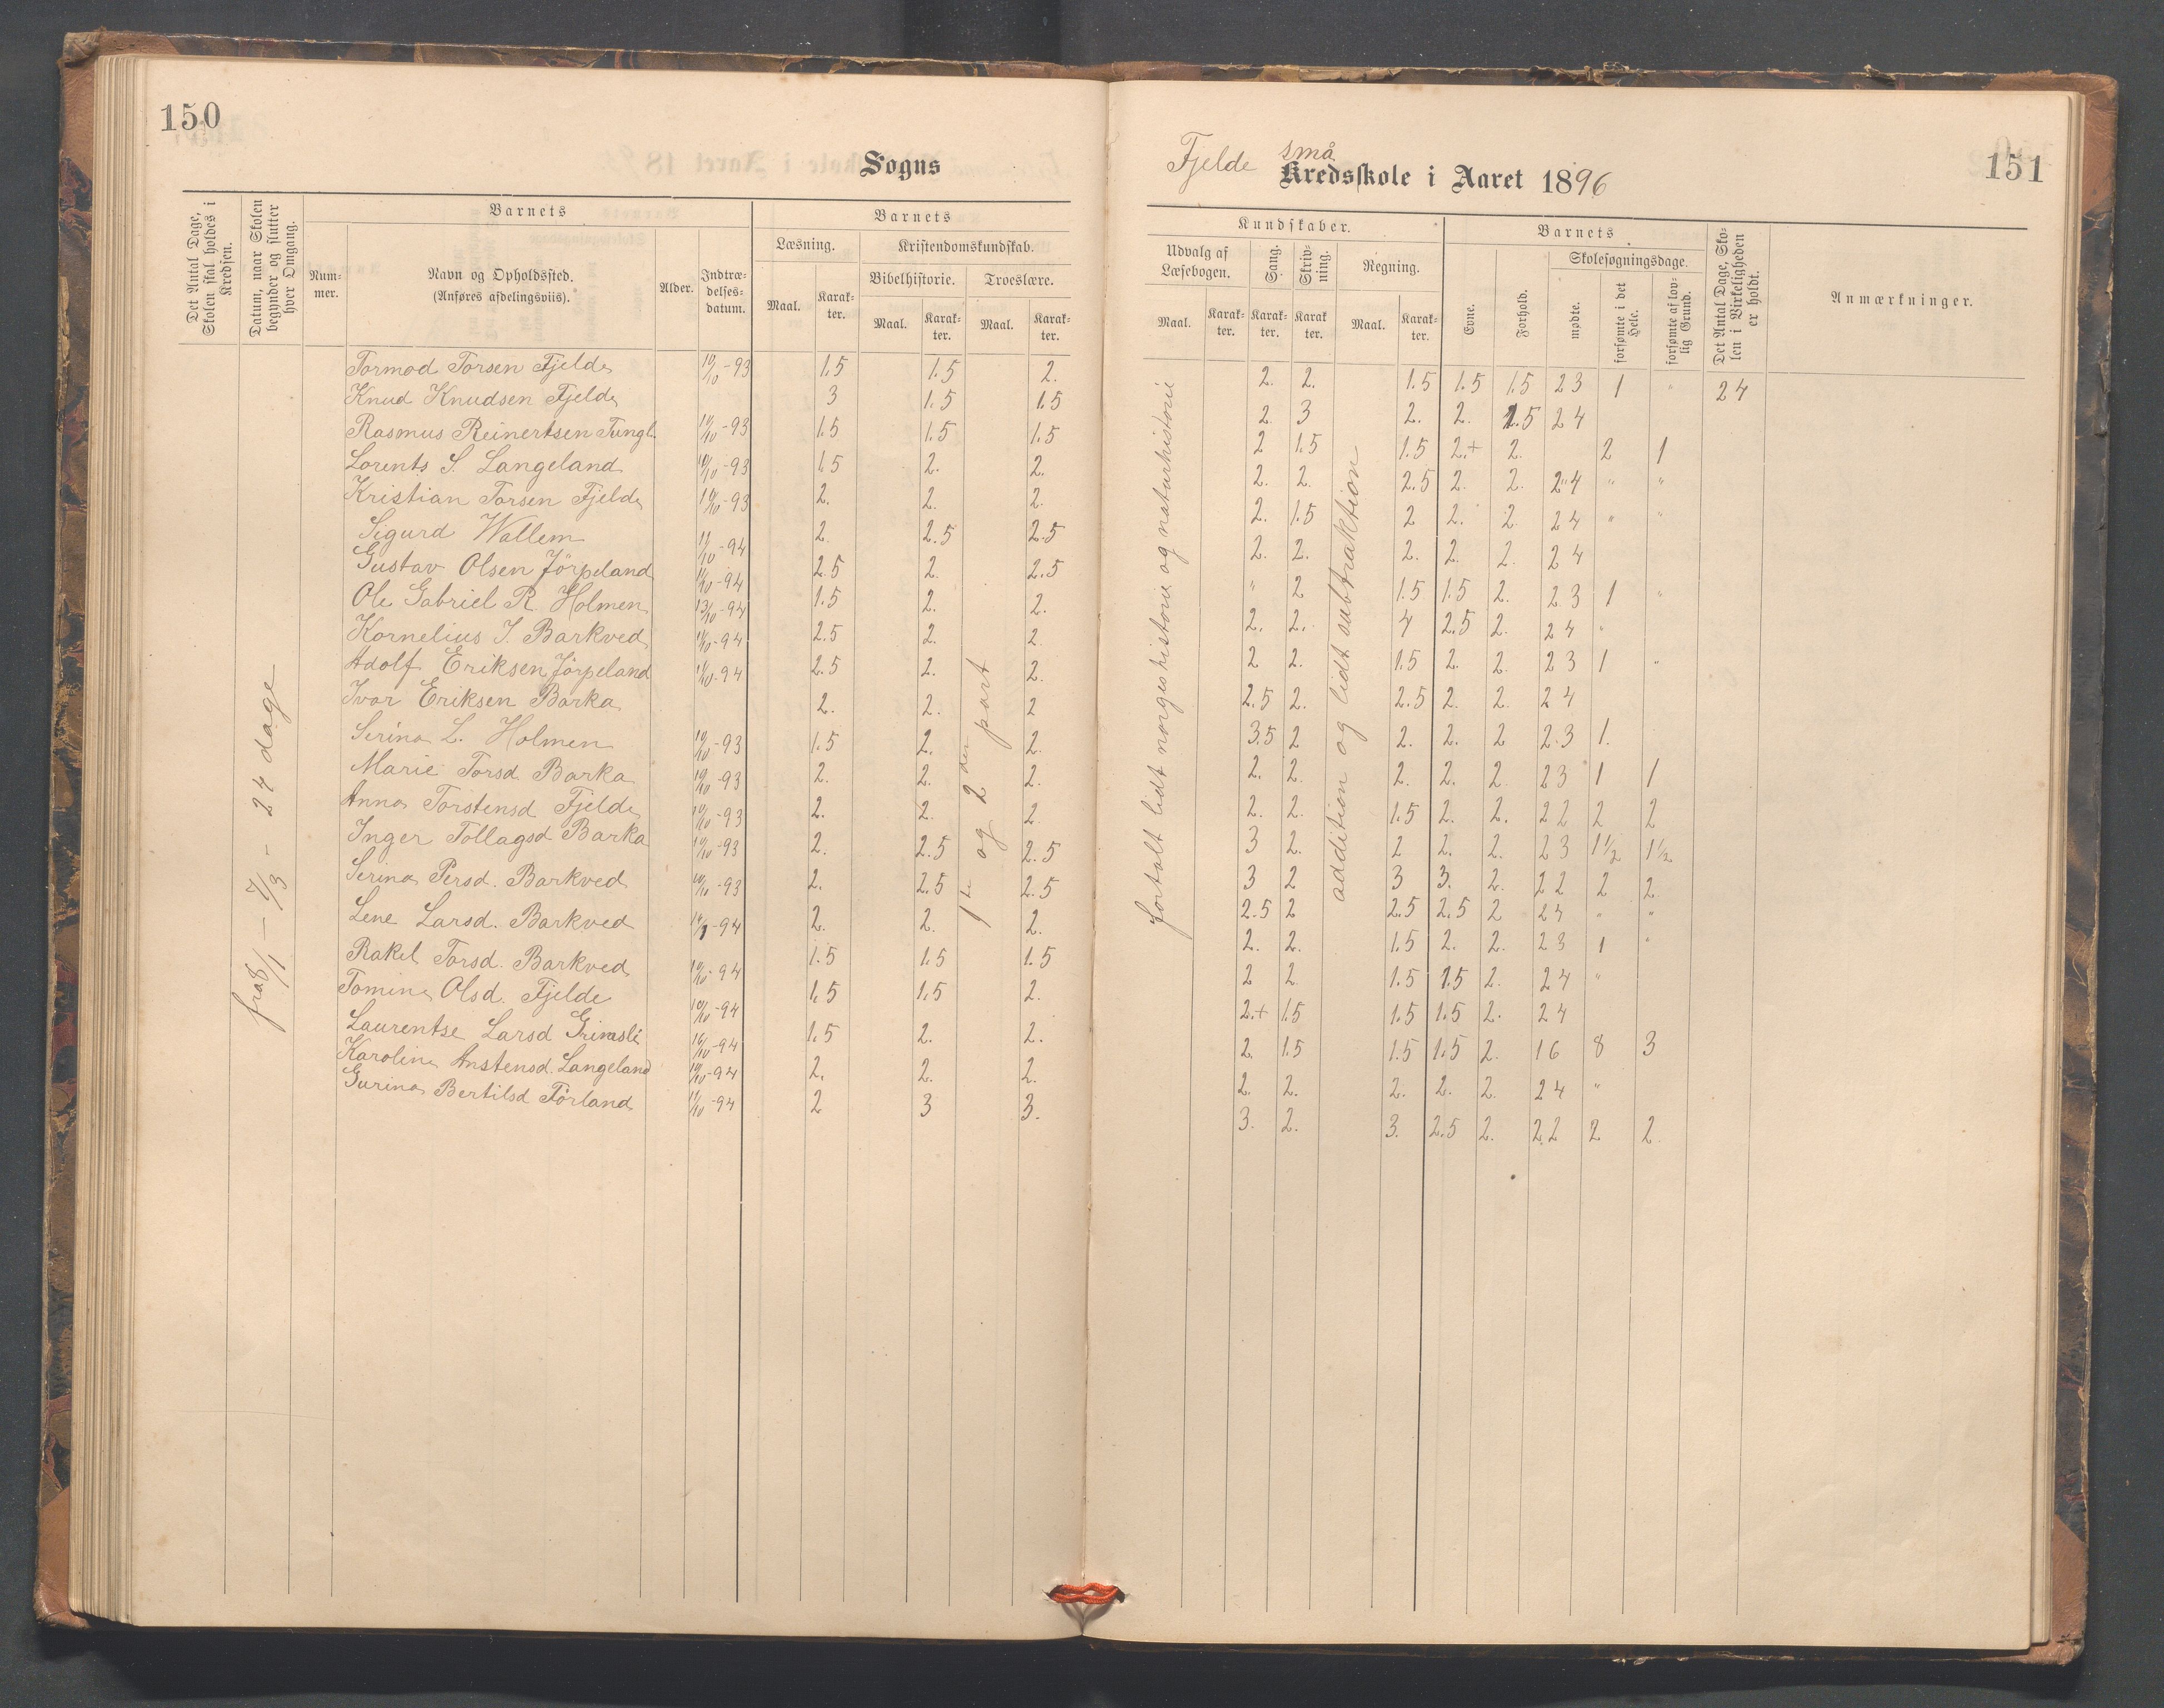 150
Sogns
Det Antal Dage, Skolen skal holdes i Kredsen.
Datum, naar Skolen begynder og slutter hver Omgang.
Barnets
Num-mer.
Navn og Opholdssted.
(Anføres afdelingsviis).
Alder.
Indtræ-delses-datum.
Barnets
Læsning.
Kristendomskundskab.
Bibelhistorie.
Troeslære.
Maal.
Karak-ter.
Maal.
Karak-ter.
Maal.
Karak-ter.
fra 8/1 - 7/3 - 24 dage
1te og 2den part
Tormod Torsen Fjelde 10/10-93 1.5 1.5 2.
Knud Knudsen Fjelde 3 1.5 1.5
Rasmus Reinertsen Tungl. 10/10-93 1.5 1.5 1.5
Lorents S. Langeland 10/10-93 1.5 2. 2.
Kristian Torsen Fjelde 10/10-93 2. 2. 2.
Sigurd Wallem 11/10-94 2. 2.5 2.5
Gustav Olsen Jörpeland 11/10-94 2.5 2. 2.5
Ole Gabriel R. Holmen 13/10-94 1.5 2. 2.
Kornelius J. Barkved 11/10-94 2.5 2. 2
Adolf Eriksen Jörpeland 11/10-94 2.5 2. 2.
Ivar Eriksen Barka 2. 2. 2
Serina L. Holmen 10/10-93 1.5 2. 2.
Marie Torsd Barka 10/10-93 2. 2. 2.
Anna Torstensd Fjelde 10/10-93 2. 2. 2.
Inger Tollagsd Barka 10/10-93 2. 2.5 2.5
Serina Persd. Barkved 10/10-93 2. 2.5 2.5
Lene Larsd. Barkved -94 2. 2. 2.
Rakel Torsd. Barkved 10/10-94 1.5 1.5 1.5
Tomine Olsd. Fjelde 10/10-94 1.5 1.5 2.
Laurentse Larsd Grimsli 10/10-94 1.5 2. 2.
Karoline Anstensd. Langeland 10/10-94 2. 2. 2.
Gurina Bertilsd Förland 11/10-94 2 3 3.
151
Fjelde små
Kredsskole i Aaret 1896
Kundskaber.
Udvalg af Læsebogen.
Sang.
Skriv-ning.
Regning.
Maal.
Karak-ter.
Karak-ter.
Karak ter.
Maal.
Karak-ter.
Barnets
Evne.
Forhold.
Skolesøgningsdage.
mødte.
forsømte i det Hele.
forsømte af lov-lig Grund.
Det Antal Dage, Sko-len i Virkeligheden er holdt.
Anmærkninger.
fortalt lidt norgeshistorie og naturhistorie
addition og lidt subtraktion
2. 2. 1.5 1.5 1.5 23 1 " 24
2. 3 2. 2. 1.5 24
2 1.5 1.5 2.+ 2. 2 1
2. 2. 2.5 2. 2. 24 " "
2. 1.5 2 2. 2. 24 " "
2. 2. 2. 2. 2. 24
" 2 1.5 1.5 2. 23 1 "
2. 2. 4 2.5 2. 24 "
2 2. 1.5 2. 2. 23 1 "
2.5 2. 2.5 2. 2. 24
3.5 2 2. 2. 2 23 1.
2. 2. 2. 2. 2. 23 1 1
2. 2. 1.5 2. 2. 22 2 2
3 2. 2 2. 2. 23 1 1/2 1 1/2
3 2 3 3. 2. 22 2 2
2.5 2 2.5 2.5 2 24 " "
2. 2. 1.5 2. 2. 23 1 "
2 2. 1.5 1.5 2. 24 "
2.+ 1.5 1.5 1.5 2. 24
2. 1.5 1.5 1.5 2. 16 8 3
2. 2. 2. 2. 2. 24 "
3. 2. 3. 2.5 2. 22 2 2.